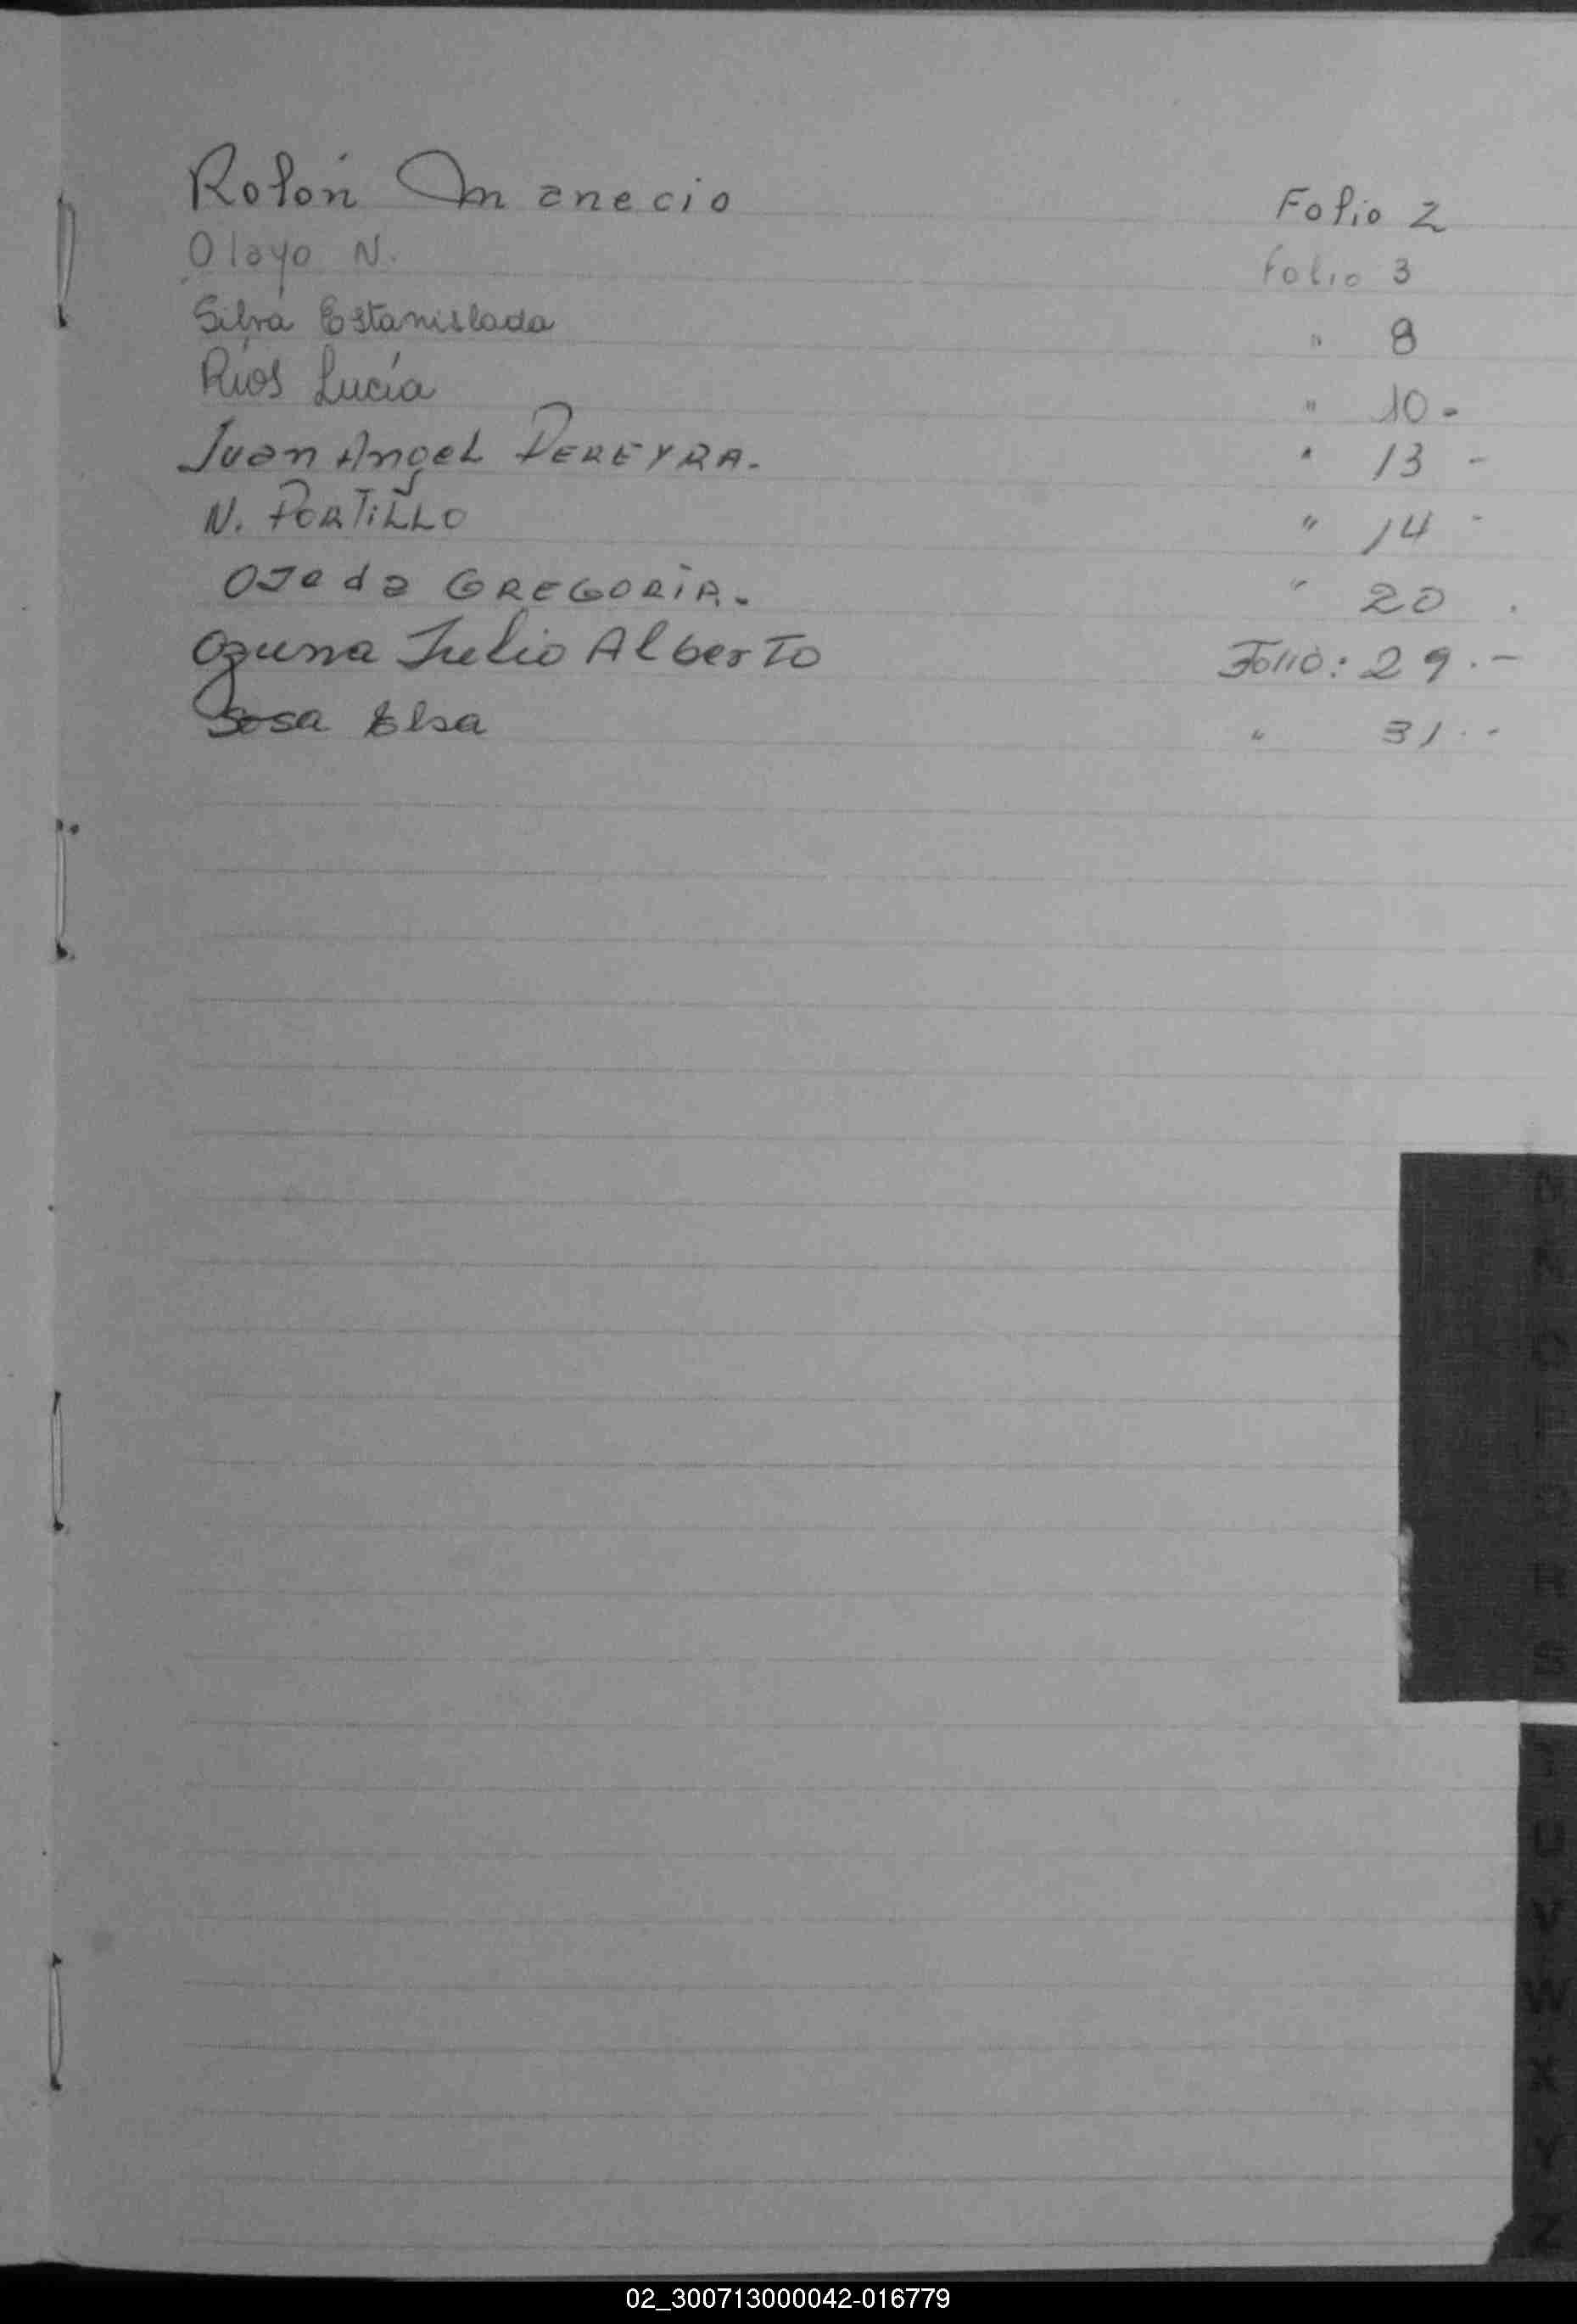 Rolón Manecio Folio 2
Olayo N. Folio 3
Silva Estanislada " 8
Ríos Lucía " 10-
Juan Angel PEREYRA. " 13 -
N. PORTiLLO " 14 -
OJeda GREGORiA. " 20 .
Ozuna Julio Alberto Folio: 29.-
Sosa Elsa " 31.-
R
S
U
V
W
X
Y
Z
02_300713000042-016779